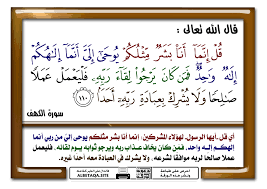 قال الله تعالى :
قُلْ إِنَّمَا أَنَا۠ بَشَرٌ مِّثْلُكُمْ يُوحَىٰٓ إِلَىَّ أَنَّمَآ إِلَٰهُكُمْ
إِلَٰهٌ وَٰحِدٌ فَمَن كَانَ يَرْجُوا۟ لِقَآءَ رَبِّهِۦ فَلْيَعْمَلْ عَمَلًا
صَٰلِحًا وَلَا يُشْرِكْ بِعِبَادَةِ رَبِّهِۦٓ أَحَدًۢا ١١٠
سورة الكهف
أي قل -أيها الرسول- لهؤلاء المشركين: إنما أنا بشر مثلكم يوحى إليَّ من ربي أنما
إلهكم إله واحد، فمن كان يخاف عذاب ربه ويرجو ثوابه يوم لقائه، فليعمل
عملا صالحا لربه موافقا لشرعه، ولا يشرك في العبادة معه أحدا غيره.
ALBETAQA.SITE